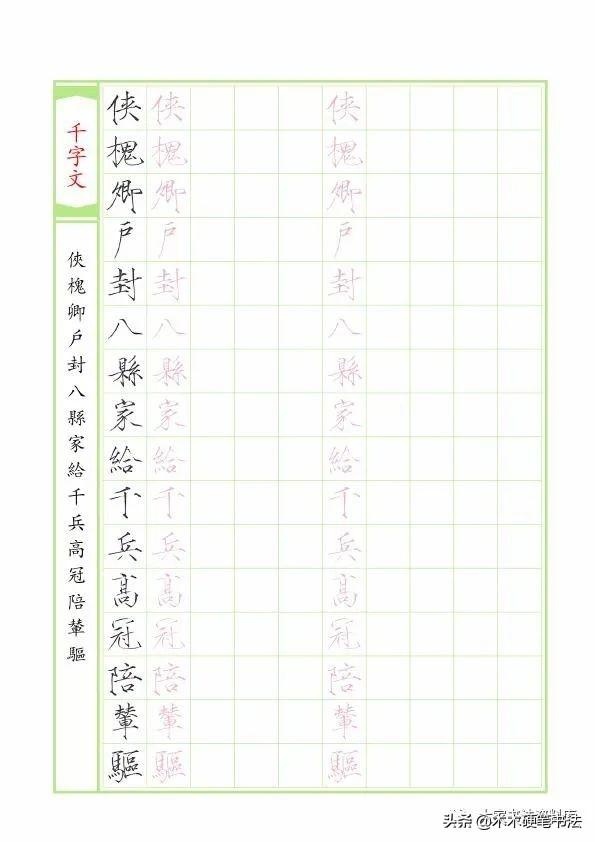 千字文
俠槐卿戶封八縣家給千兵高冠陪輦驅
俠槐卿戶封八縣家給千兵髙冠陪輦驅
俠槐卿戶封八縣家給千兵髙冠陪輦驅
俠槐卿戶封八縣家給千兵髙冠陪輦驅
头条 @木木硬笔书法